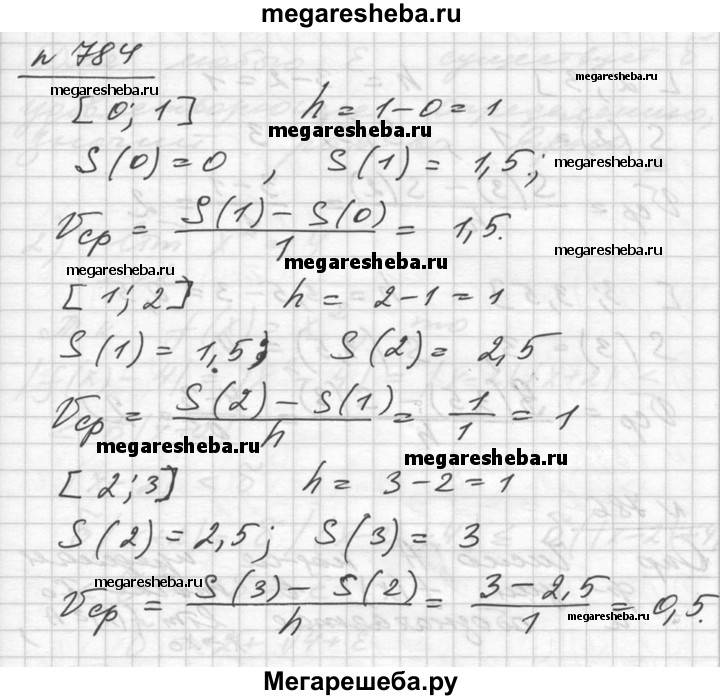 megaresheba.ru
n 784
megaresheba.ru megaresheba.ru
[0; 1] h = 1-0 = 1
megaresheba.ru
S(0) = 0 , S(1) = 1,5;
megaresheba.ru
Vср = S(1) - S(0) / 1 = 1,5.
megaresheba.ru megaresheba.ru megaresheba.ru
[1; 2] h = 2-1 = 1
S(1) = 1,5; S(2) = 2,5
Vср = S(2) - S(1) / h = 1/1 = 1
megaresheba.ru megaresheba.ru
[2; 3] h = 3-2 = 1
S(2) = 2,5; S(3) = 3
megaresheba.ru
Vср = S(3) - S(2) / h = 3 - 2,5 / 1 = 0,5.
megaresheba.ru
Мегарешеба.ру